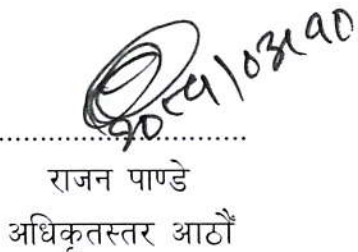 राजन पाण्डे
अधिकृतस्तर आठौँ